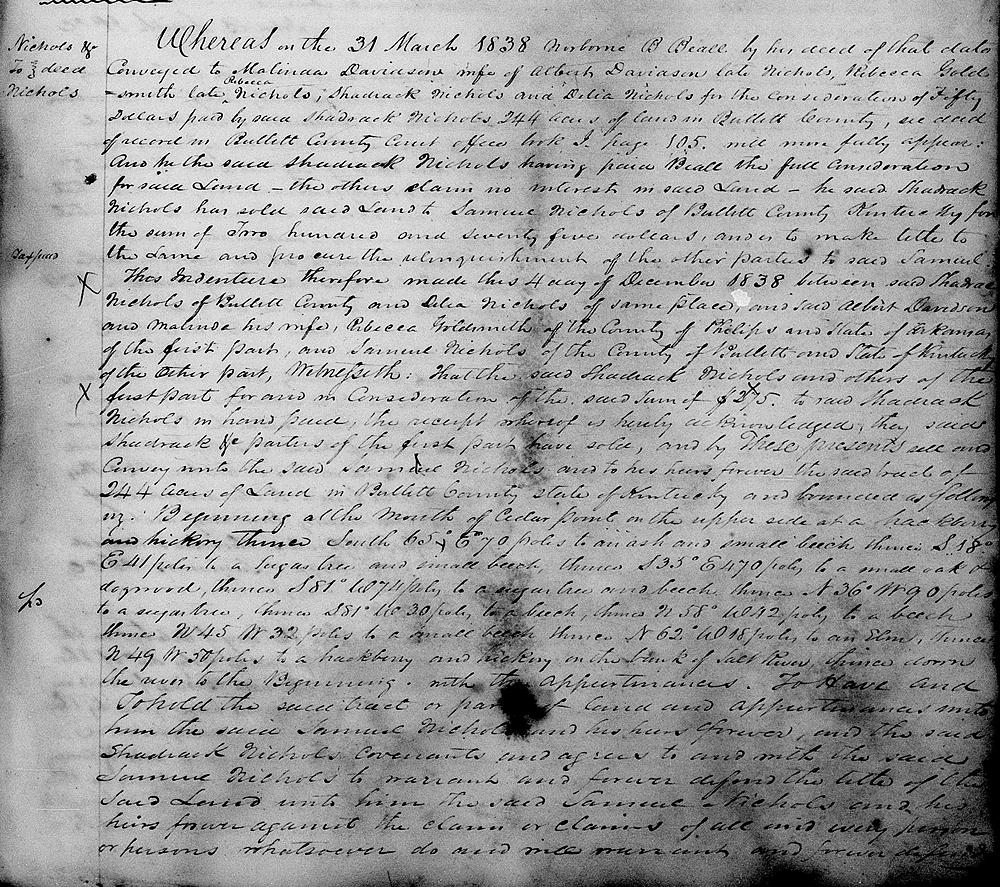 Nichols &c
To } deed
Nichols
Whereas on the 31 March 1838 Norborne B Beall by his deed of that date
Conveyed to Malinda Davidson wife of Albert Davidson late Nichols, Rebecca Gold
-smith late Rebecca Nichols, Shadrack Nichols and Delia Nichols for the Consideration of Fifty
Dollars paid by said Shadrack Nichols 244 acres of land in Bullett County, see deed
of record in Bullett County Court office book I. page 105. will more fully appear:
And he the said Shadrack Nichols having paid Beall the full Consideration
for said Land – the others claim no interest in said Land – he said Shadrack
Nichols has sold said Land to Samuel Nichols of Bullett County Kentucky for
the sum of Two hundred and seventy five dollars, and is to make title to
the same and procure the relinquishment of the other parties to said Samuel
This Indenture therefore made this 4 day of December 1838 between said Shadrac
Nichols of Bullett County and Delia Nichols of same place, and said Albert Davidson
and Malinda his wife, Rebecca Goldsmith of the County of Philips and State of Arkansas
of the first part, and Samuel Nichols of the County of Bullett and State of Kentucky
of the other part, Witnesseth: That the said Shadrack Nichols and others of the
first part for and in Consideration of the said sum of $275. to said Shadrack
Nichols in hand paid, the receipt whereof is hereby acknowledged, they said
Shadrack &c parties of the first part have sold, and by These presents sell and
Convey unto the said Samuel Nichols and to his heirs forever the said tract of
244 acres of Land in Bullett County state of Kentucky and bounded as follow
viz. Beginning at the Mouth of Cedar point, on the upper side at a hackberry
and hickory thence South 65° E 70 poles to an ash and small beech thence S. 18°
E 41 poles to a sugartree and small beech, thence S 35° E 470 poles to a small oak &
dogwood, thence S 81° W 74 poles to a sugartree and beech thence N 36° W 90 poles
to a sugartree, thence S 81° W 30 poles to a beech, thence N 58° W 42 poles to a beech
thence N 45 W 32 poles to a small beech thence N 62° W 18 poles to an Elm, thence
N 49 W 50 poles to a hackberry and hickory on the bank of Salt River, thence down
the river to the Beginning. with the appurtinances. To Have and
To hold the said tract or par of land and appurtinances unto
him the said Samuel Nichols and his heirs forever, and the said
Shadrack Nichols Covenants and agrees to and with the said
Samuel Nichols to warrant and forever defend the title of the
said Land unto him the said Samuel Nichols and his
heirs forever against the claim or claims of all and every person
or persons whatsoever do and will warrant and forever defend